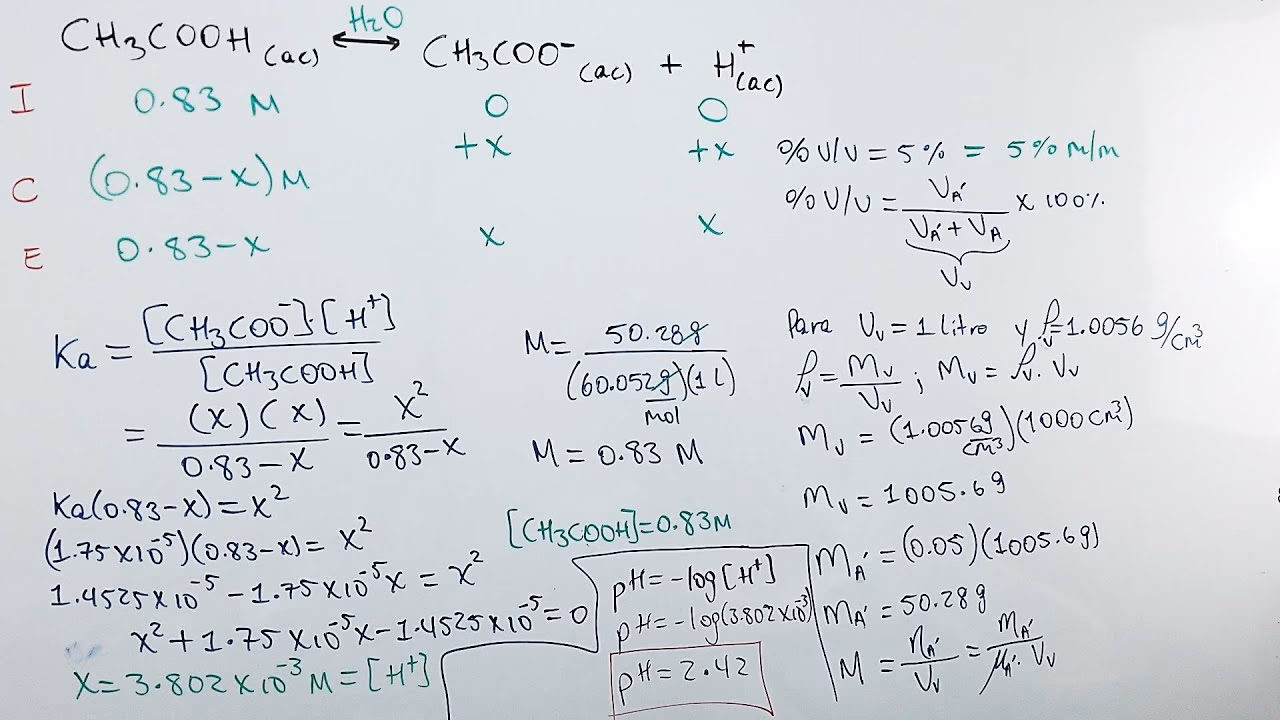 CH₃COOH (ac) ⟷ H₂O CH₃COO⁻ (ac) + H⁺ (ac)
I 0.83 M 0 0
+x +x
C (0.83-x)M
E 0.83-x x x
Ka = [CH₃COO⁻]·[H⁺] / [CH₃COOH]
= (x)(x) / 0.83-x = x² / 0.83-x
Ka(0.83-x) = x²
(1.75x10⁻⁵)(0.83-x) = x²
1.4525x10⁻⁵ - 1.75x10⁻⁵x = x²
x² + 1.75x10⁻⁵x - 1.4525x10⁻⁵ = 0
x = 3.802x10⁻³ M = [H⁺]
M = 50.28g / (60.052g/mol)(1L)
M = 0.83 M
[CH₃COOH] = 0.83M
pH = -log[H⁺]
pH = -log(3.802x10⁻³)
pH = 2.42
%V/V = 5% = 5% m/m
%V/V = V_A' / V_A' + V_A x 100%
V_v
Para V_v = 1 litro y ρ_v = 1.0056 g/cm³
ρ_v = m_v / V_v ; m_v = ρ_v · V_v
m_v = (1.0056g/cm³)(1000cm³)
m_v = 1005.6g
m_A' = (0.05)(1005.6g)
m_A' = 50.28g
M = n_A' / V_v = m_A' / μ_A' · V_v